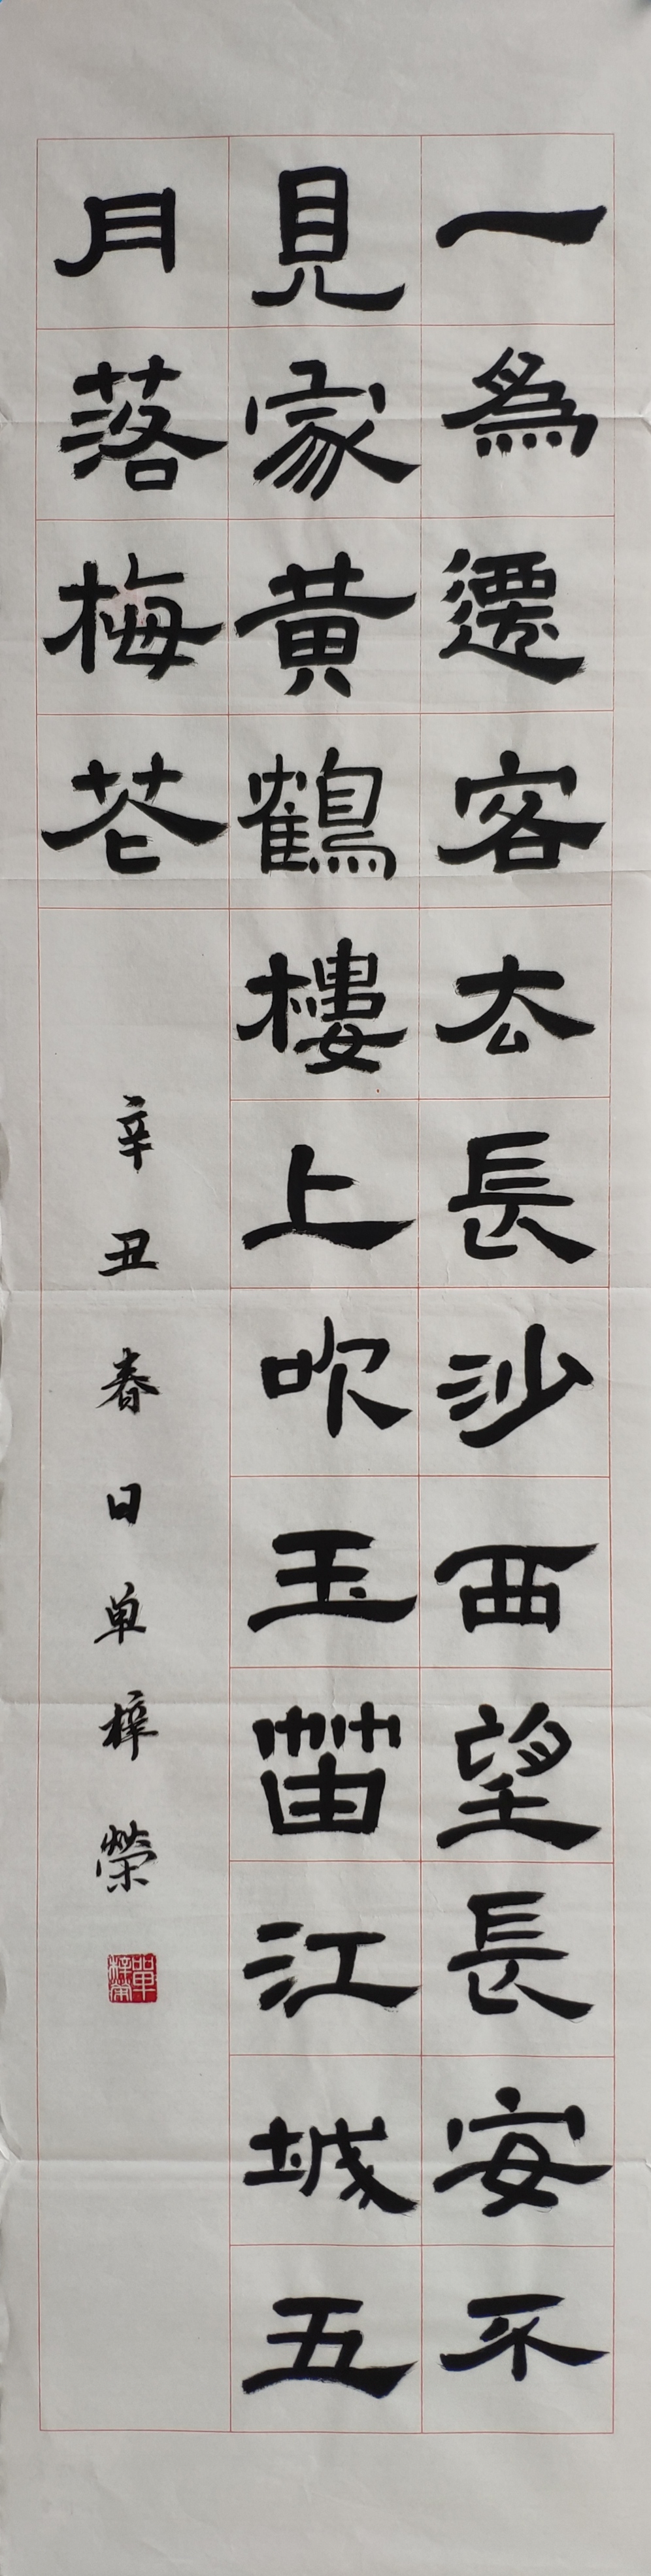 一為遷客去長沙西望長安不
見家黃鶴樓上吹玉笛江城五
月落梅花
辛丑春日单梓榮
單梓榮